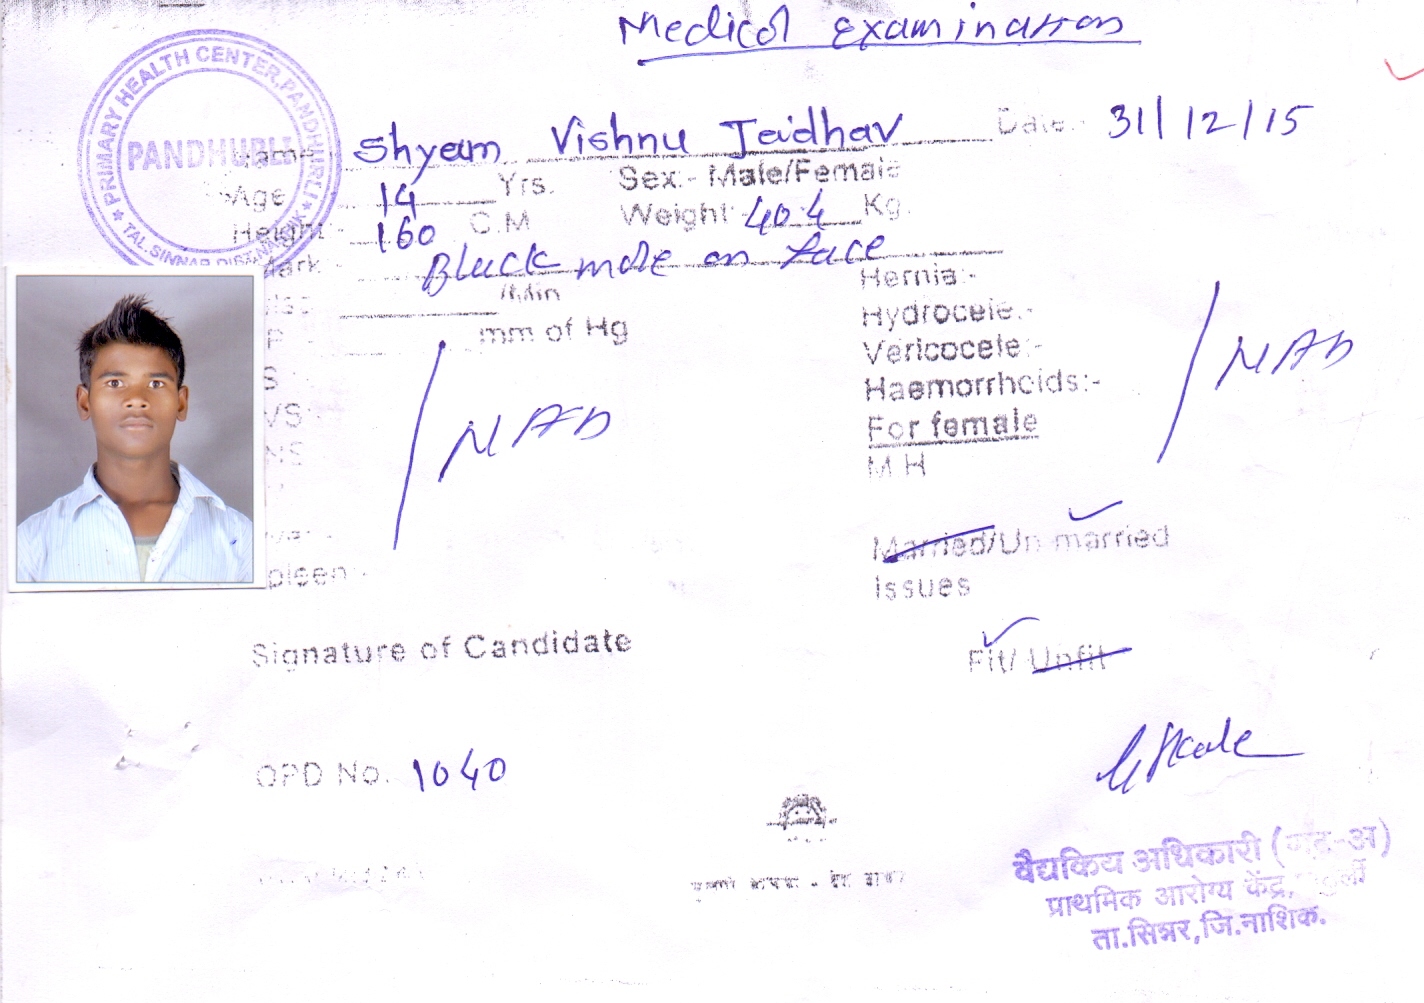 Medical examination
PRIMARY HEALTH CENTER, PANDHURLI
PANDHURLI
TAL.SINNAR
Shyam Vishnu Jadhav Date:- 31/12/15
Age 14 Yrs. Sex:- Male/Female
Height:- 160 C.M Weight 40.4 Kg.
Mark:- Black mole on face
/Min Hernia:-
mm of Hg Hydrocele:-
Vericocele:-
NAD Haemorrhoids:- NAD
For female
M H
Married/Un married
Spleen:- Issues
Signature of Candidate Fit/ Unfit
OPD No. 1040
वैद्यकिय अधिकारी (गट-अ)
प्राथमिक आरोग्य केंद्र,
ता.सिन्नर,जि.नाशिक.